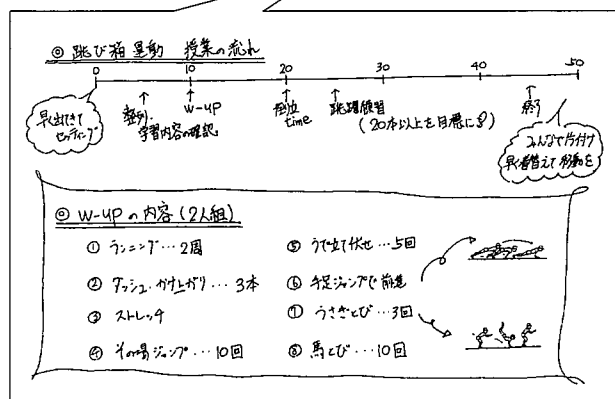 ◎ 跳び箱運動 授業の流れ
0 10 20 30 40 50
早く出てきてセッティング
整列・学習内容の確認
W-UP
倒立time
跳躍練習
(20本以上を目標に!)
終り
みんなで片付け
早く着替えて移動を
◎ W-UPの内容(2人組)
① ランニング…2周
② ダッシュ・かけ上がり…3本
③ ストレッチ
④ その場ジャンプ…10回
⑤ うで立て伏せ…5回
⑥ 手足ジャンプで前進
⑦ うさぎとび…3回
⑧ 馬とび…10回